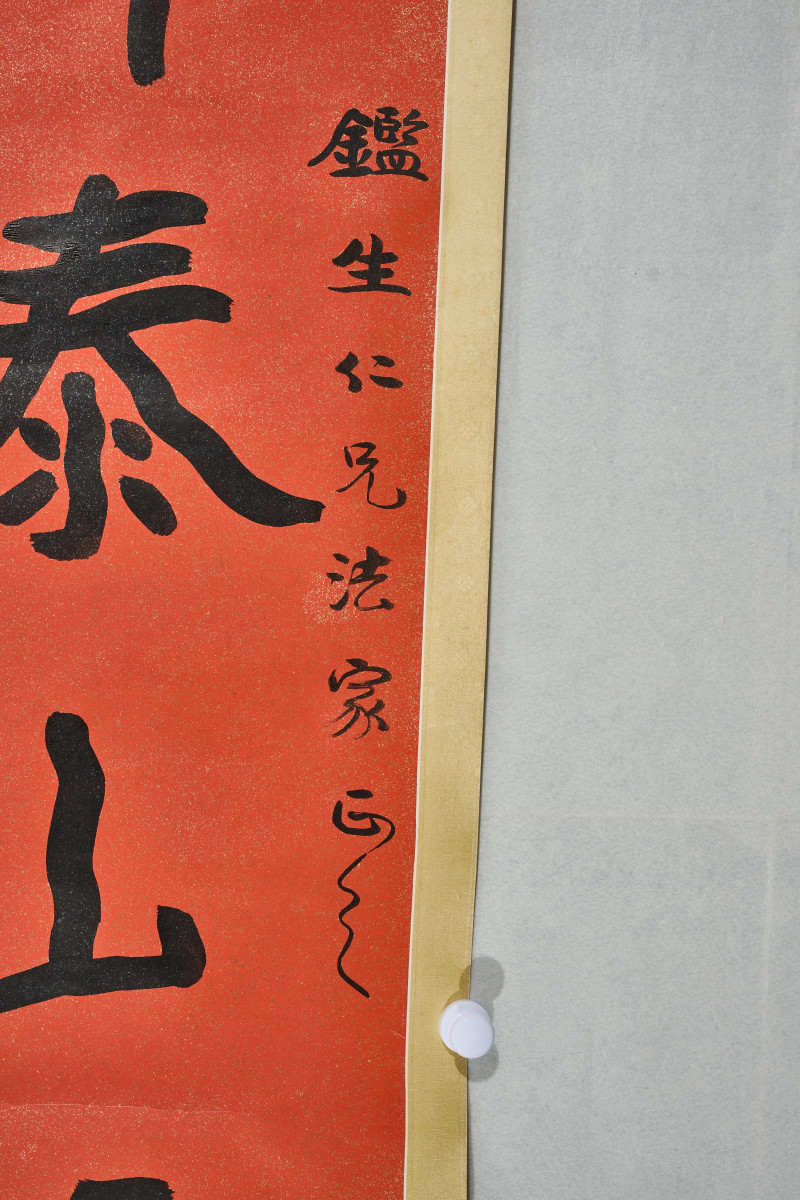 鑑生仁兄法家正之
泰山